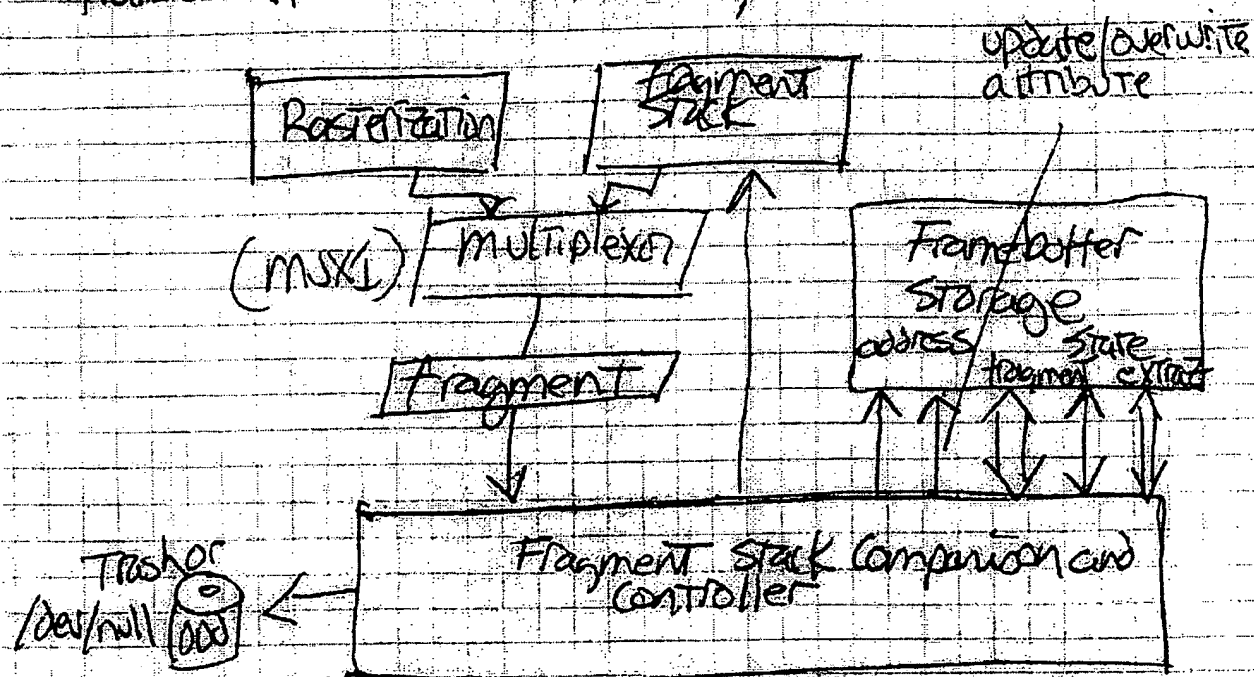 update/overwrite
attribute
Rasterization
Fragment
Stack
(MUX1)
Multiplexor
Framebuffer
Storage
address
State
fragment
extract
Fragment
Fragment Stack Comparison and
Controller
Trash or
/dev/null